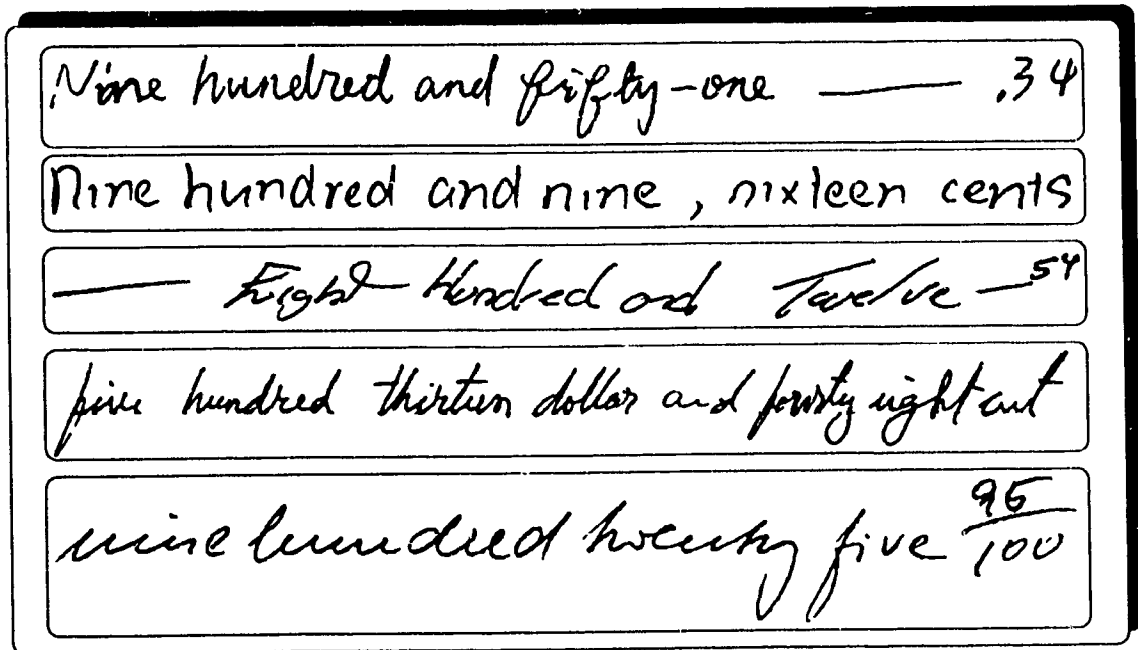 Nine hundred and fifty-one — .34
Nine hundred and nine, sixteen cents
— Eight Hundred and Twelve — 54
five hundred thirteen dollar and fourty eight cent
nine hundred twenty five 95/100